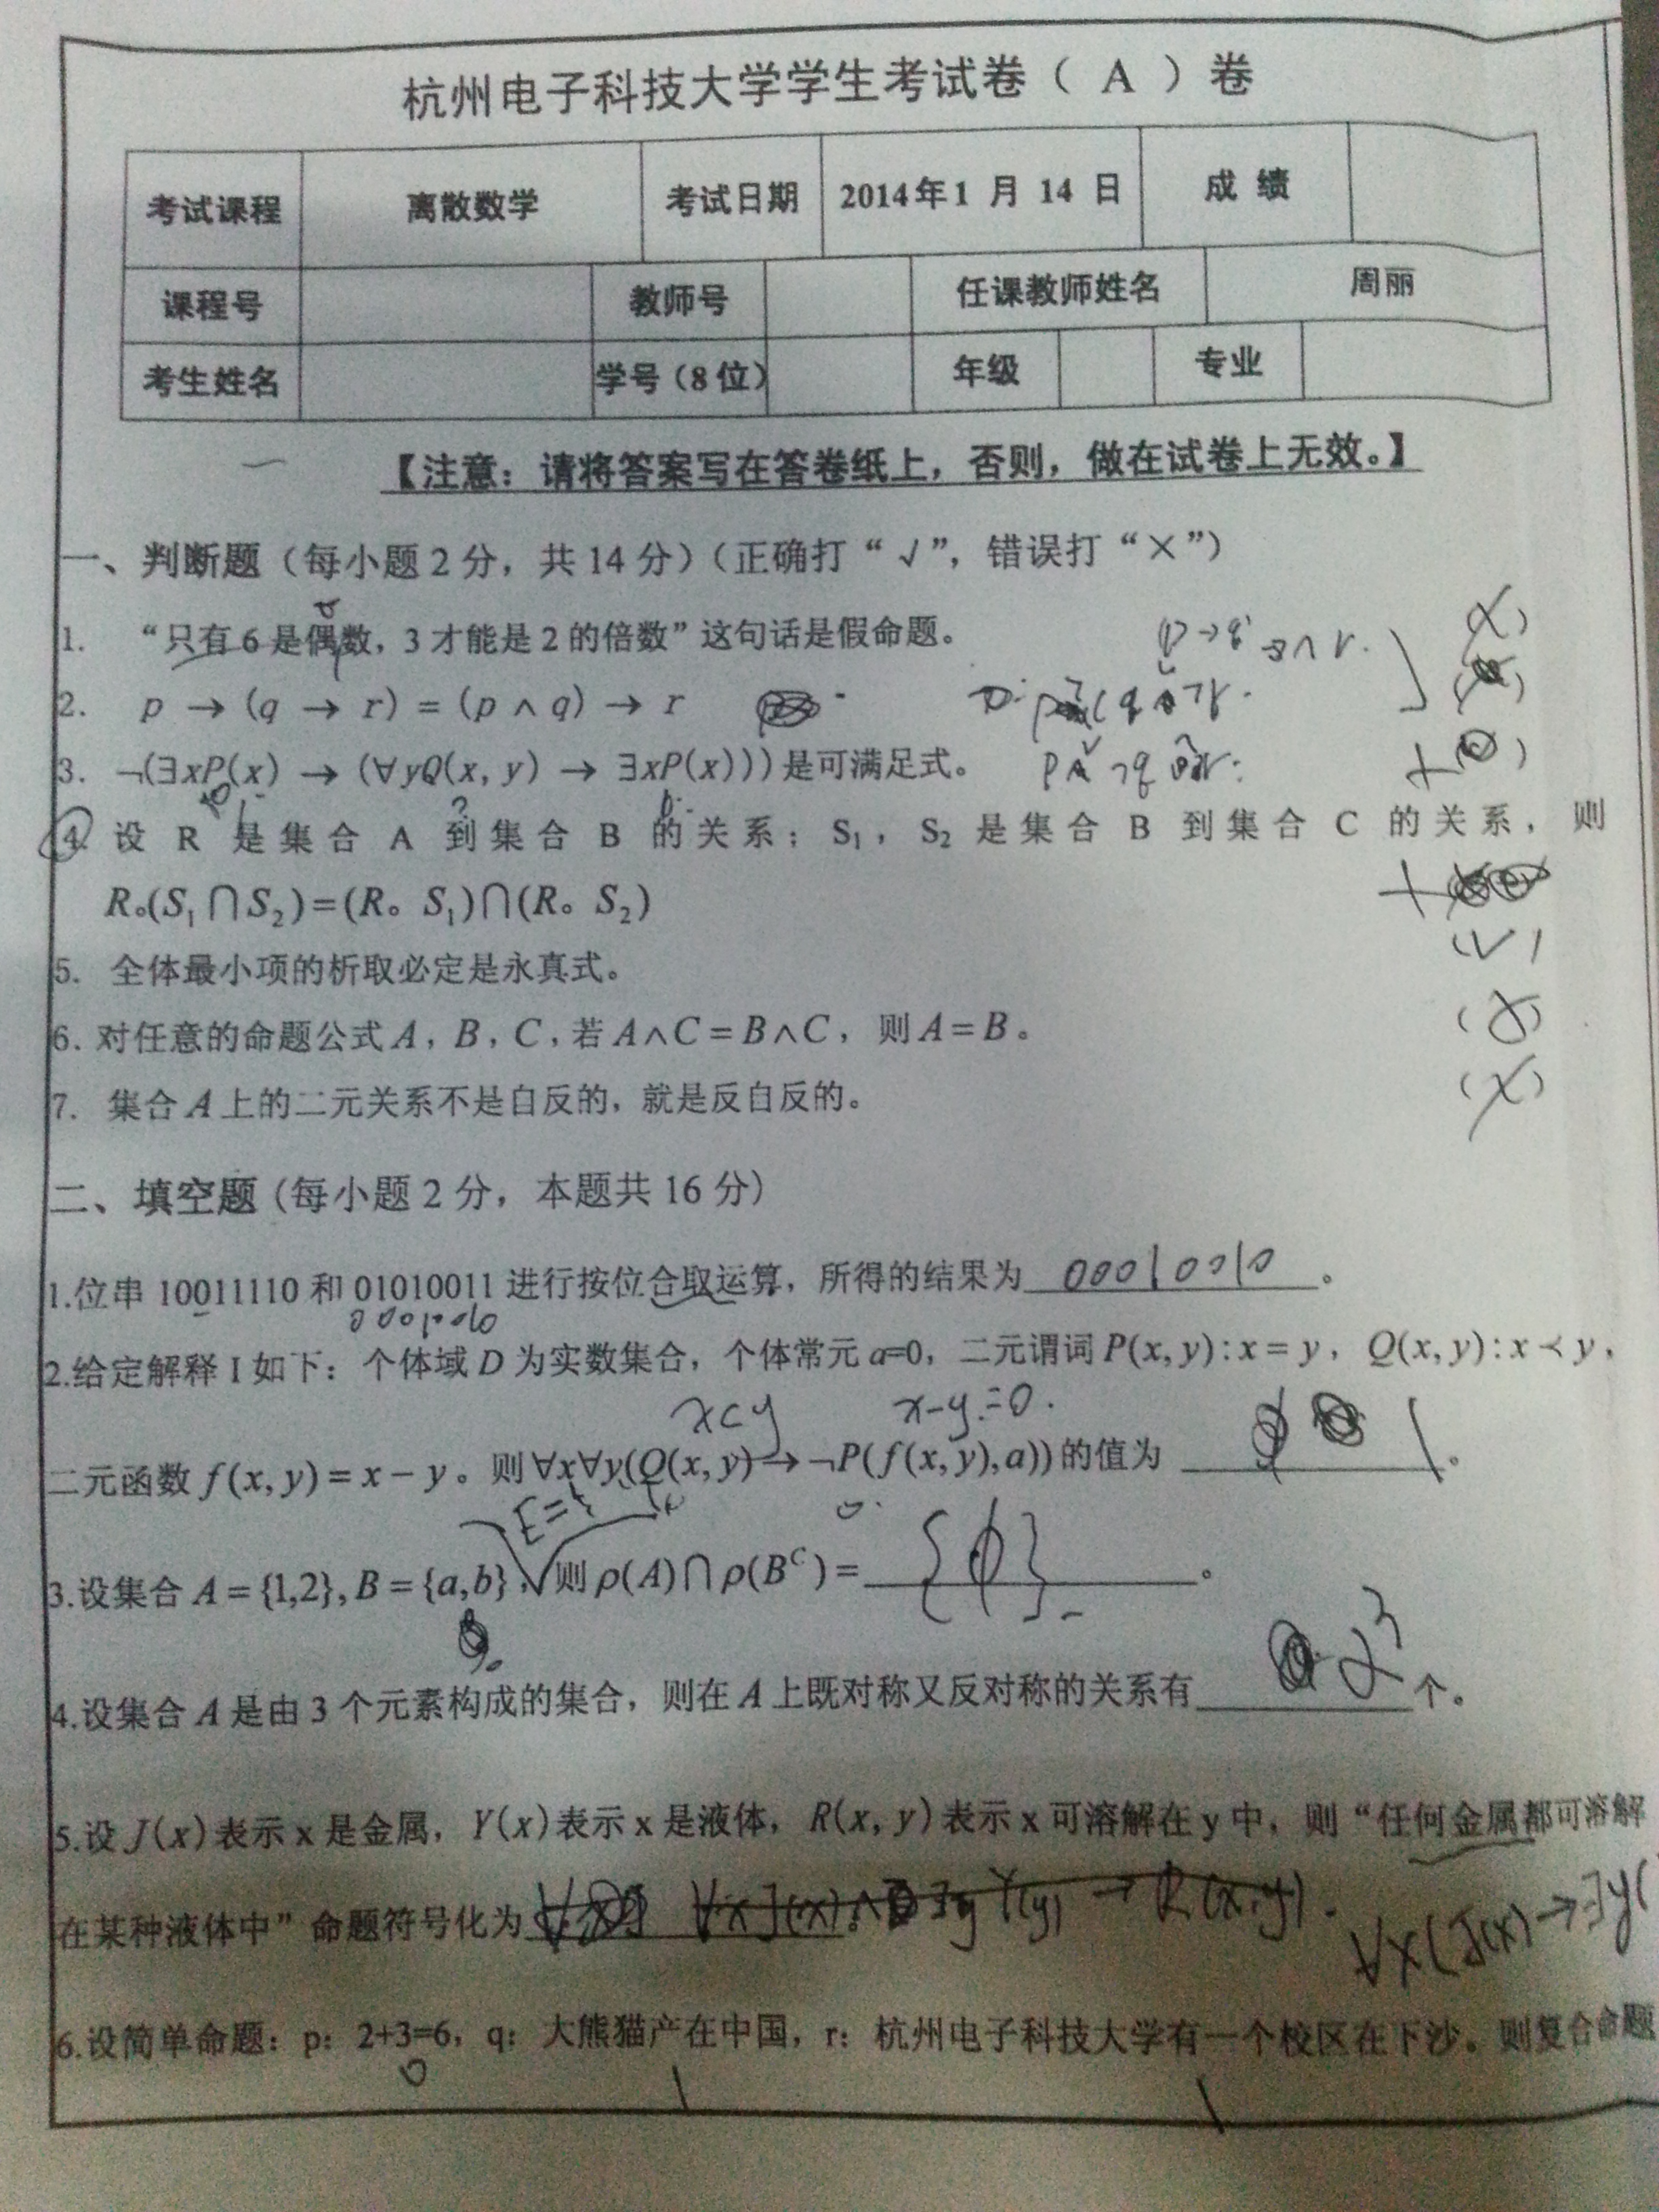 杭州电子科技大学学生考试卷（ A ）卷
考试课程 离散数学 考试日期 2014年1 月 14 日 成 绩
课程号 教师号 任课教师姓名 周丽
考生姓名 学号（8位） 年级 专业
【注意：请将答案写在答卷纸上，否则，做在试卷上无效。】
一、判断题（每小题2分，共14分）（正确打“√”，错误打“×”）
1. “只有6是偶数，3才能是2的倍数”这句话是假命题。 (X)
2. p → (q → r) = (p ∧ q) → r
3. ¬(∃xP(x) → (∀yQ(x, y) → ∃xP(x)))是可满足式。
4. 设 R 是集合 A 到集合 B 的关系；S₁，S₂ 是集合 B 到集合 C 的关系，则
R∘(S₁∩S₂)=(R∘ S₁)∩(R∘ S₂)
5. 全体最小项的析取必定是永真式。 (√)
6. 对任意的命题公式A，B，C，若A∧C=B∧C，则A=B。 (X)
7. 集合A上的二元关系不是自反的，就是反自反的。 (X)
二、填空题（每小题2分，本题共16分）
1.位串10011110和01010011进行按位合取运算，所得的结果为 00010010 。
00010010
2.给定解释I如下：个体域D为实数集合，个体常元a=0，二元谓词P(x, y):x = y，Q(x, y):x ≺ y，
x<y x-y=0.
二元函数f(x, y) = x − y。则∀x∀y(Q(x, y)→¬P(f(x, y),a))的值为 1 。
3.设集合A={1,2},B={a,b}，则ρ(A)∩ρ(Bᶜ)= {ϕ} 。
4.设集合A是由3个元素构成的集合，则在A上既对称又反对称的关系有 2³ 个。
5.设J(x)表示x是金属，Y(x)表示x是液体，R(x, y)表示x可溶解在y中，则“任何金属都可溶解
在某种液体中”命题符号化为 ∀x J(x) ∧ ∃y Y(y) → R(x,y). ∀x(J(x)→∃y(
6.设简单命题：p：2+3=6，q：大熊猫产在中国，r：杭州电子科技大学有一个校区在下沙。则复合命题
0 1 1